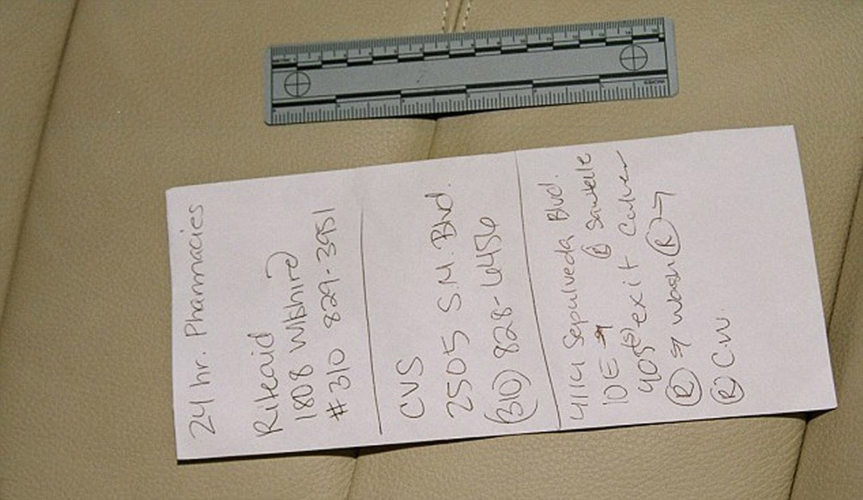 24 hr. Pharmacies
Riteaid
1808 Wilshire
#310 829-3951
CVS
2505 S.M. Blvd.
(310) 828-6456
4114 Sepulveda Blvd.
10 E → R Sawtelle
405 (S) exit Culver
R → Wash R →
R C.W.